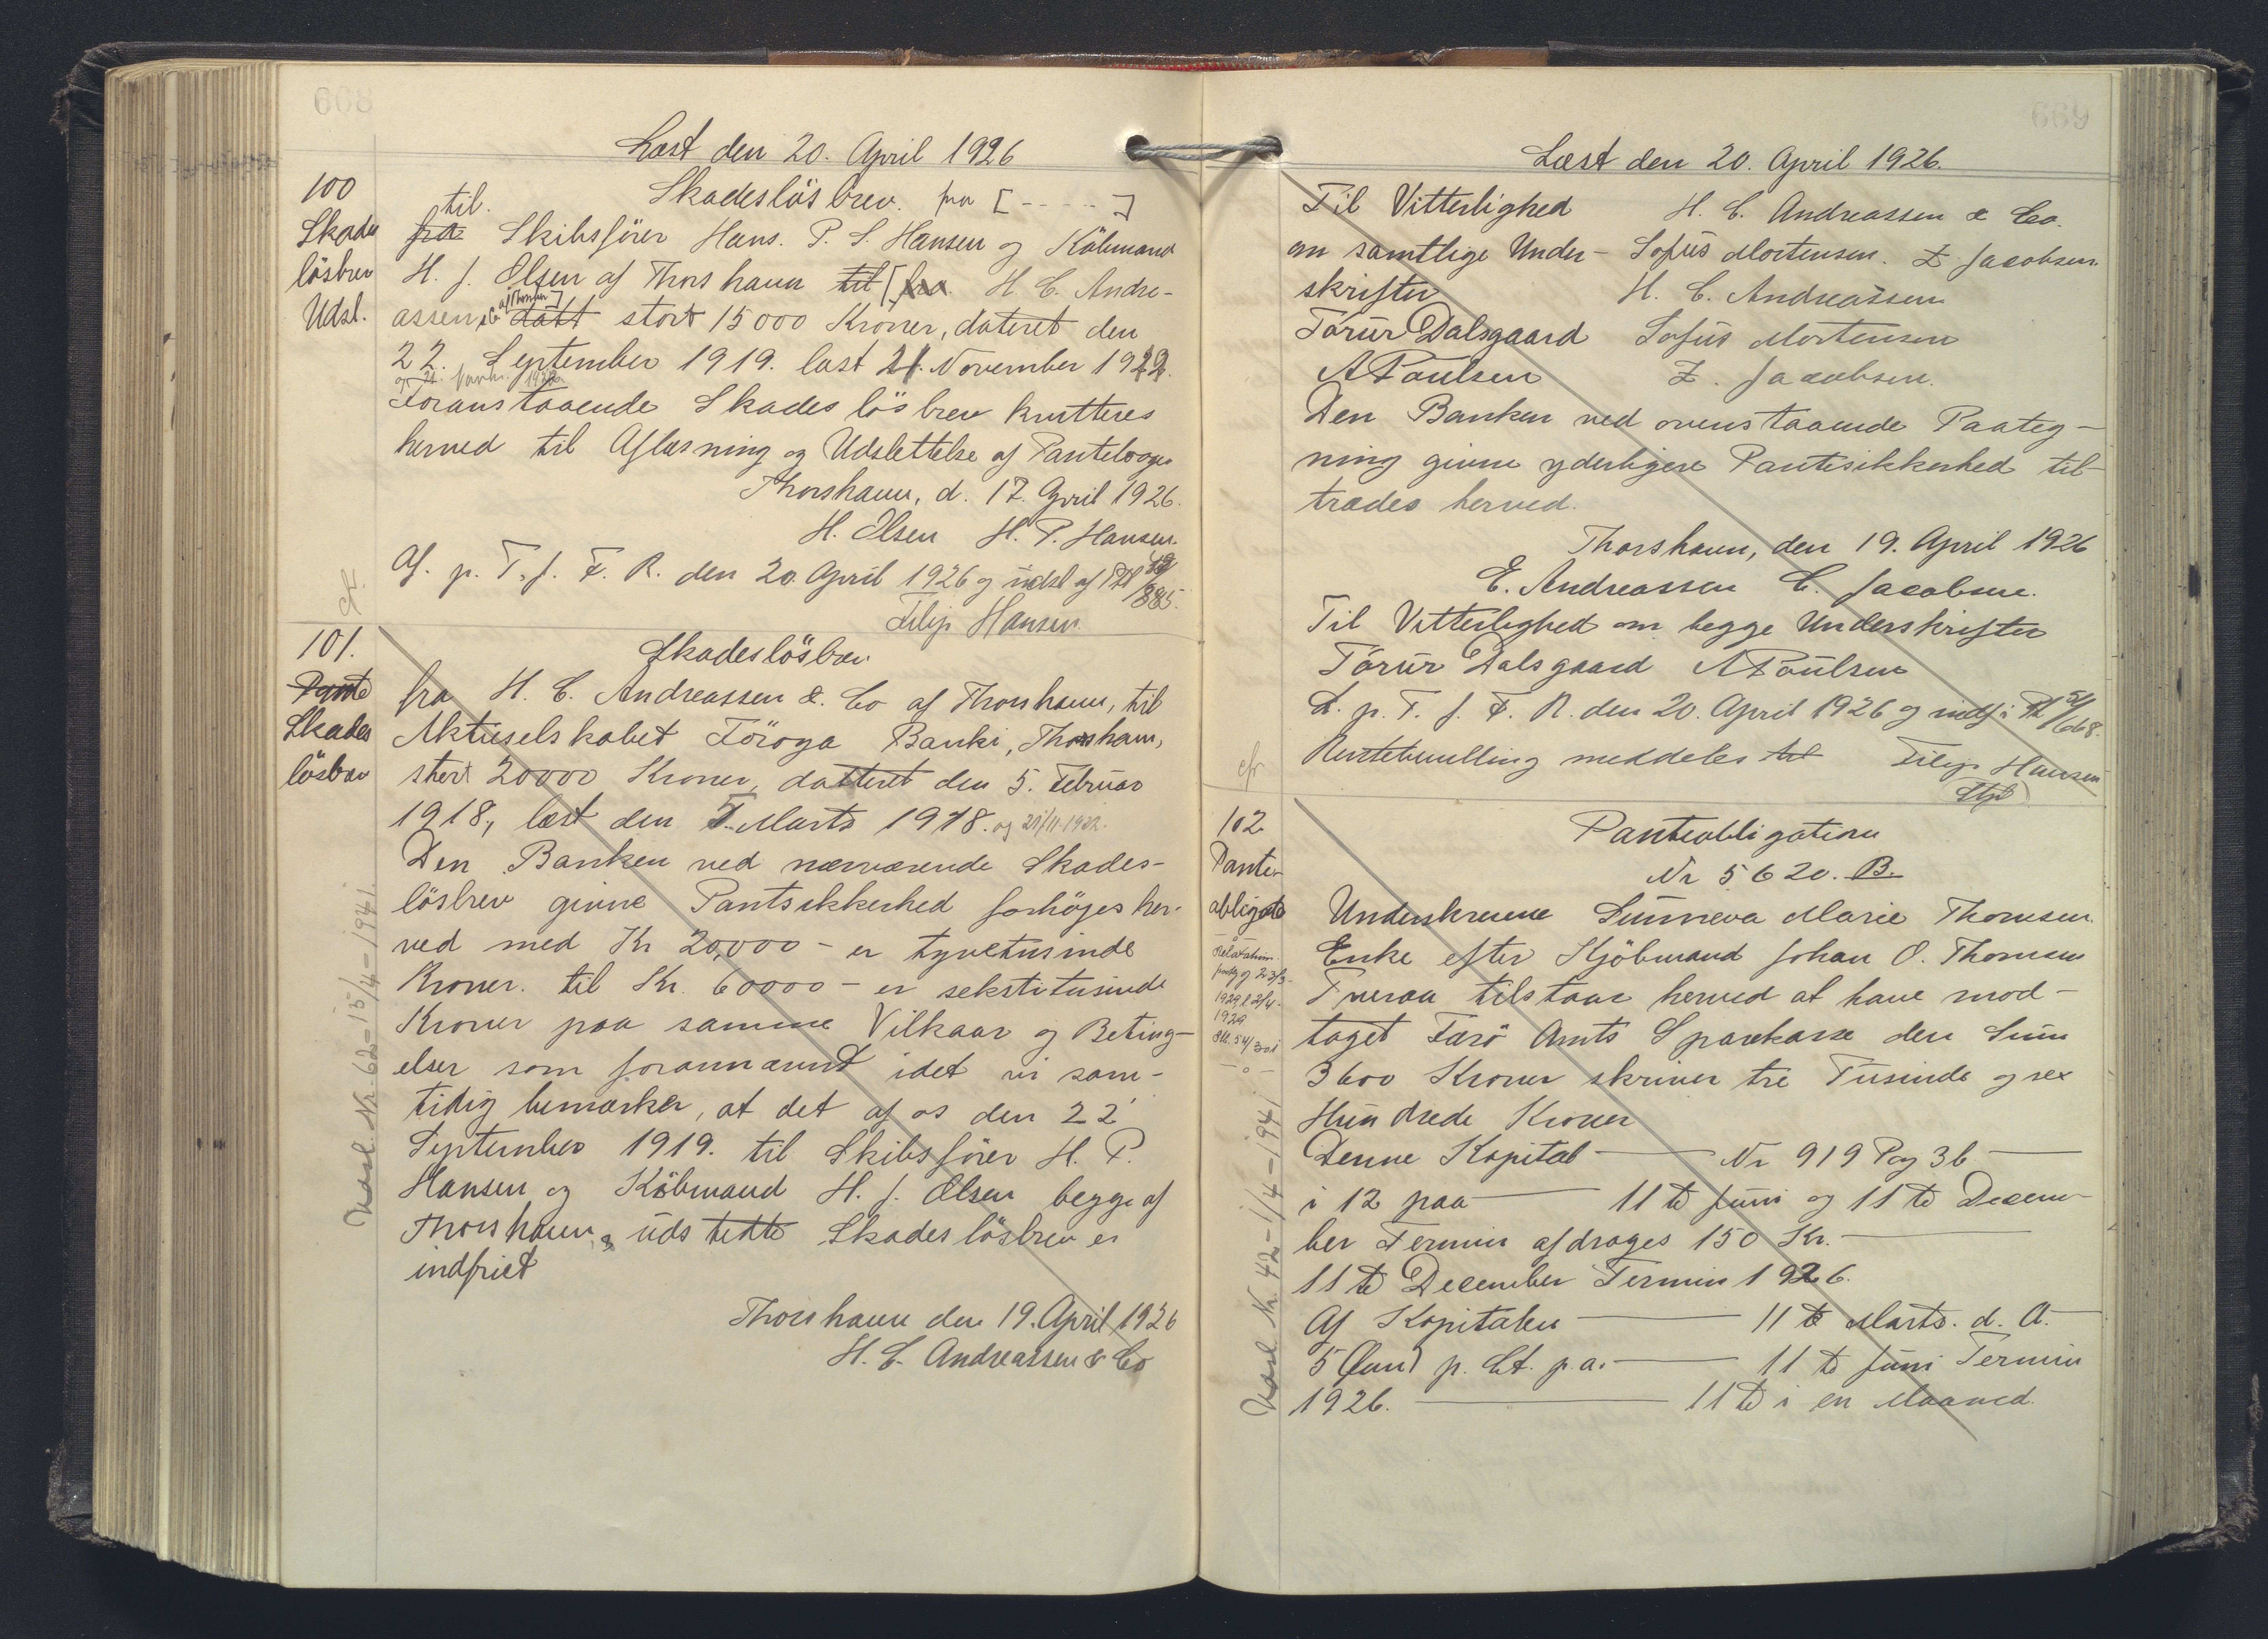 668
Læst den 20. April 1926
100
Skades
lösbrev
Udsl.
Skadeslösbrev. fra [- - - - -]
til.
fra Skibsförer Hans. P. S. Hansen og Köbmand
H. J. Olsen af Thorshavn til [fra H. C. Andre-
assen & Co af Thorshavn] datt stort 15000 Kroner, dateret den
22. September 1919. læst 21. November 1922.
og 21. Novbr. 1922
Foranstaaende Skadeslösbrev kvitteres
herved til Aflæsning og Udslettelse af Pantebogen
Thorshavn, d. 17. April 1926.
H. Olsen H. P. Hansen.
Af. p. T. f. F. R. den 20. April 1926 og udsl af Pb 49/885.
Filip Hansen.
cfr.
101.
Pante
Skades
lösbrev
Skadeslösbrev
fra H. C. Andreassen & Co af Thorshavn, til
Aktieselskabet Föroya Banki, Thorshavn,
stort 20000 Kroner, datteret den 5. Februar
1918, læst den 5. Marts 1918. og 21/11 1922.
Den Banken ved nærværende Skades-
lösbrev givne Pantsikkerhed forhöjes her-
ved med Kr 20,000 - er tyvetusinde
Kroner. til Kr. 60000 - er sekstitusinde
Kroner paa samme Vilkaar og Beting-
elser som forannævnt idet vi sam-
tidig bemærker, at det af os den 22'
September 1919. til Skibsförer H. P.
Hansen og Köbmand H. J. Olsen begge af
Thorshavn, udstedte Skadeslösbrev er
indfriet
Thorshavn den 19. April 1926
H. C. Andreassen & Co
Udsl. Nr. 62 - 15/4 - 1941.
669
Læst den 20. April 1926.
Til Vitterlighed H. C. Andreassen & Co.
om samtlige Under- Sofus Mortensen. Z. Jacobsen.
skrifter H. C. Andreassen
Jörur Dalsgaard Sofus Mortensen
A Poulsen Z. Jacobsen.
Den Banken ved ovenstaaende Paateg-
ning givne yderligere Pantesikkerhed til-
trædes herved.
Thorshavn, den 19. April 1926
E. Andreassen C. Jacobsen.
Til Vitterlighed om begge Underskrifter
Jörur Dalsgaard A Poulsen
L. p. T. f. F. R. den 20. April 1926 og indf i Pb 51/668.
meddeles Filip Hansen
cfr
102
Pante-
obligatio
23/3-
1929 l 2/4-
1929
Pbl. 54/301
- o -
Panteobligation
Nr 5620. B.
Underskrevne Sunneva Marie Thomsen
Enke efter Kjöbmand Johan O. Thomsen
Tveraa tilstaar herved at have mod-
taget Færö Amts Sparekasse den Sum
3600 Kroner skriver tre Tusinde og sex
Hundrede Kroner
Denne Kapital — Nr 919 Pag 36 —
i 12 paa — 11te Juni og 11te Decem-
ber Termin afdrages 150 Kr. —
11te December Termin 1926.
Af Kapitalen — 11te Marts. d. A. —
5 (fem) p. Ct. p. a. — 11te Juni Termin
1926. — 11te i en Maaned.
Udsl. Nr. 42 - 1/4 - 1941